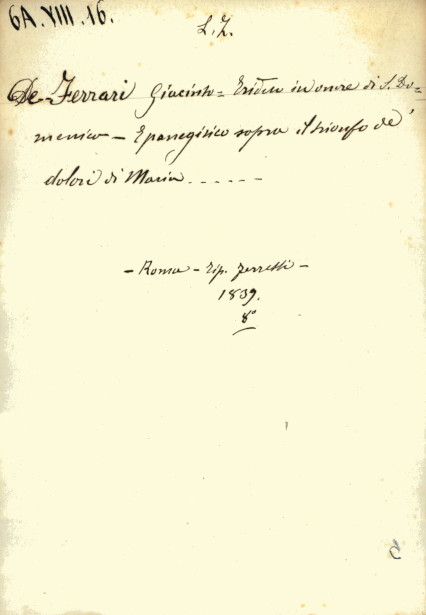 6A.VIII.16.
L. Z.
De-Ferrari Giacinto= Triduo in onore di S. Do=
menico – E panegirico sopra il trionfo de'
dolori di Maria ......
– Roma – Tip. Ferretti –
1839.
8°
5